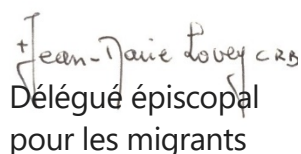 + Jean-Marie Lovey CRB
Délégué épiscopal
pour les migrants